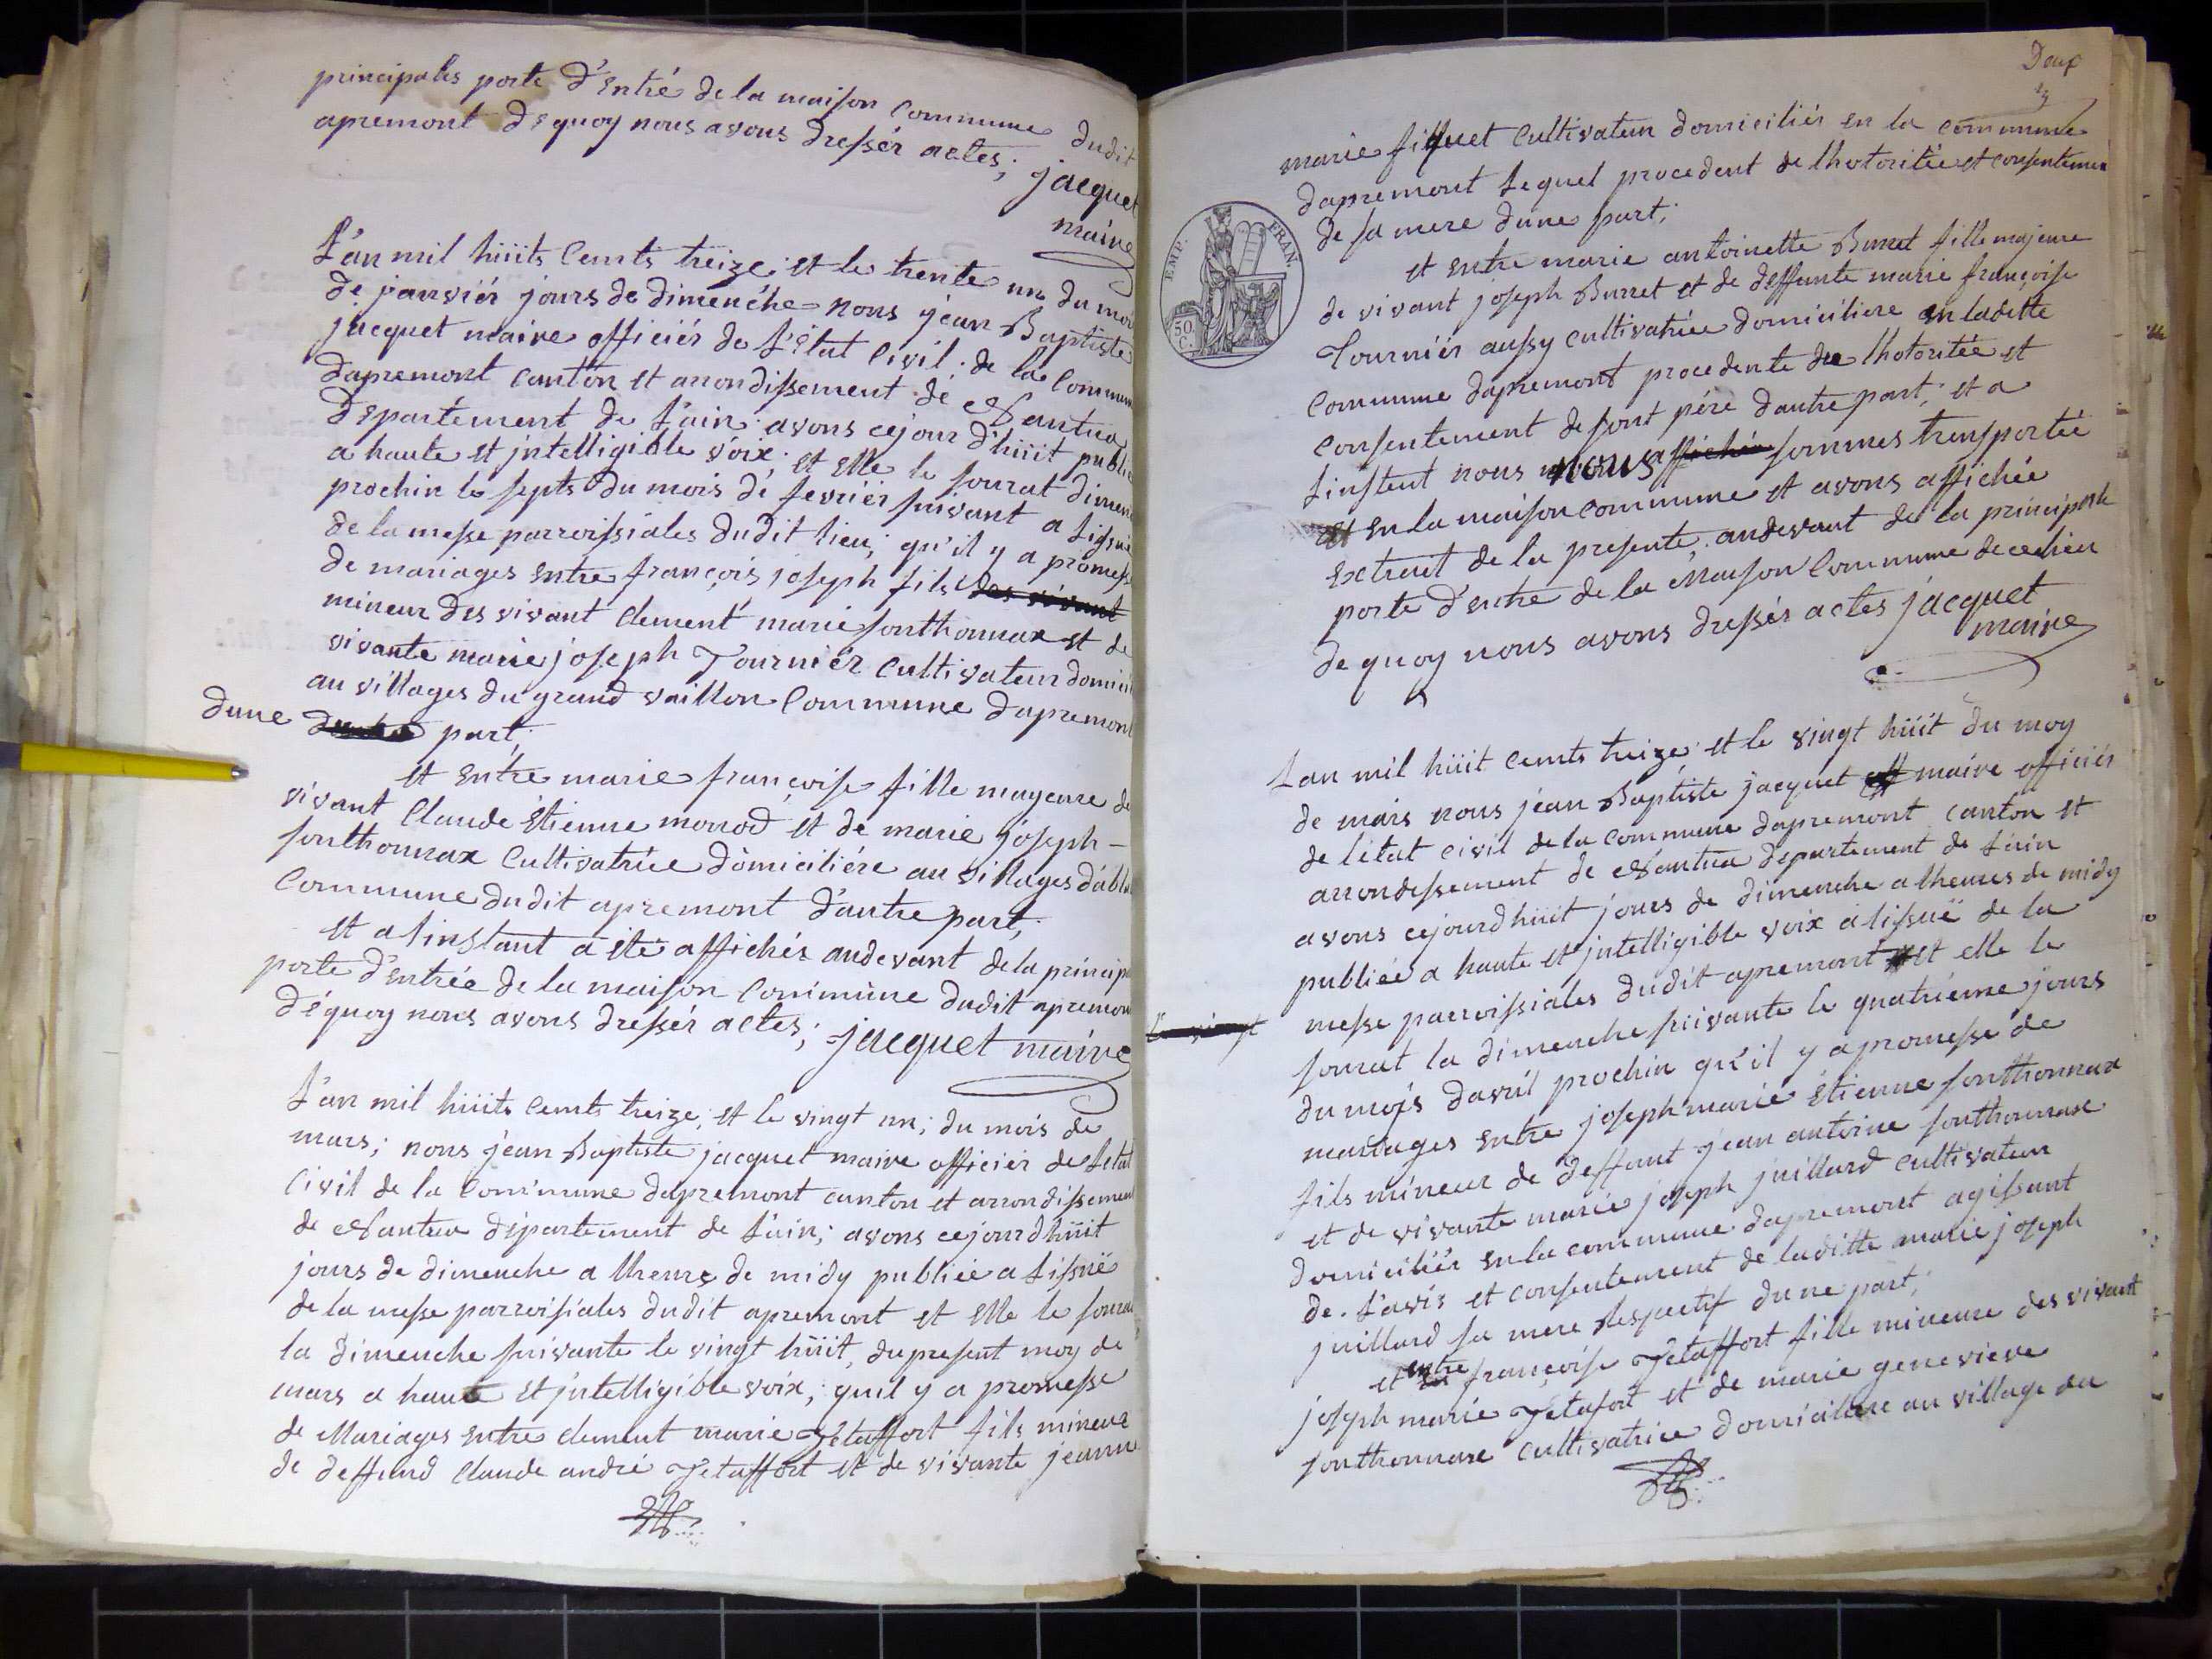 principales porte d'Entré de la maison Commune dudit
apremont dequoy nous avons dressér actes; jacquet
maire
L'an mil hüits Cents treize; et le trente un du moi
de janviér jours de dimenche nous jean Baptiste
jacquet maire officiér de L'état Civil; de la Commun
dapremont canton et arrondissement de Nantua
département de L'ain; avons cejour d'hüit publi
a haute et jntelligible voix; et Elle le sourat dimen
prochin le septs du mois de fevriér suivant a Lissuë
de la messe parroissiales dudit lieu; qu'il y a promess
de mariages Entre françois joseph fils des vivant
mineur des vivant Clement marie sonthonnax et de
vivante marie joseph Tourniér Cultivateur domici
au villages du grand vaillon Commune dapremont
dune part;
et Entre marie françoise fille mageure de
vivant Claude Étienne monod et de marie joseph –
sonthonnax Cultivatrice domiciliére au villages d'abla
Commune dudit apremont d'autre part;
et a l'instant a été affichér audevant de la princip
porte d'Entrée de la maison Commune dudit apremon
déquoy nous avons dressér actes; jacquet maire
L'an mil hüits Cents treize; et le vingt un; du mois de
mars; nous jean Baptiste jacquet maire officiér de Létat
Civil de la Commune dapremont canton et arrondissement
de Nantua département de L'ain; avons cejourdhüit
jours de dimenche a lheure de midy publiée a Lissuë
de la messe parroisiales dudit apremont et Elle le sourat
la dimenche suivante le vingt hüit, dupresent moy de
mars a haute et jntelligible voix; quil y a promesse
de Mariages Entre clement marie Jetaffort fils mineur
de deffund Claude andré Jetaffort et de vivante jeanne
Deux
marie filluet Cultivateur domiciliér en la commune
dapremont Lequel procedent de lhotoritée et consentemen
de sa mere dune part;
EMP. FRAN.
50. C.
et Entre marie antoinette Burret fille majeure
de vivant joseph Burret et de deffunte marie françoise
Tourniér aussy cultivatrice domiciliere en ladette
Commune dapremont procedente de lhotoritée et
Consentement de sont pére dautre part; et a
Linstent nous nous affichér sommes trensportée
et en la maison commune et avons affichée
Extrait de la presente, audevant de la principale
porte d'Entre de la Maison Commune de ce lieu
de quoy nous avons dressér actes jacquet
maire
Lan mil hüit Cents treize; et le vingt hüit du moy
de mars nous jean Baptiste jacquet off maire officiér
de létat civil de la commune dapremont canton et
arrondessement de Nantua département de Lain
avons cejourdhüit jours de dimenche a lheures de midy
publiée a haute et jntelligible voix a lissuë de la
messe parroissiales dudit apremont et elle le
sourat la dimenche suivante le quatriéme jours
du mois davril prochin qu'il y a promesse de
mariages Entre joseph marie Étienne sonthonnax
fils mineur de deffunt jean antoine sonthonnax
et de vivante marie joseph juillard cultivateur
domiciliér en la commune dapremont agissant
de. L'avis et consentement de laditte marie joseph
juillard sa mere Respectif dune part;
et entre françoise Jetaffort fille mineure des vivant
joseph marie Jetafort et de marie genevieve
sonthonnax cultivatrice domiciliere au village du